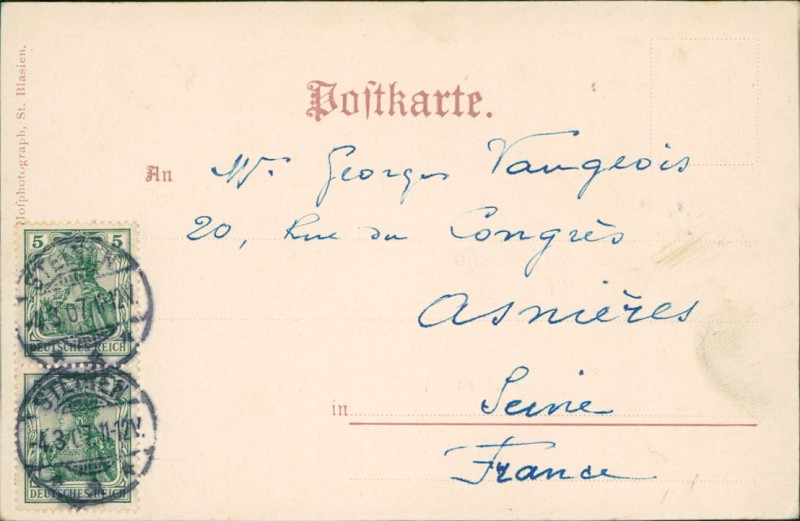 Postkarte.
An Mr. Georges Vaugeois
20, Rue du Congrès
Asnières
in Seine
France
Hofphotograph, St. Blasien.
5 5
STEINEN
4.3.07.11-12V.
DEUTSCHES REICH
STEINEN
-4.3.07.11-12V.
DEUTSCHES REICH